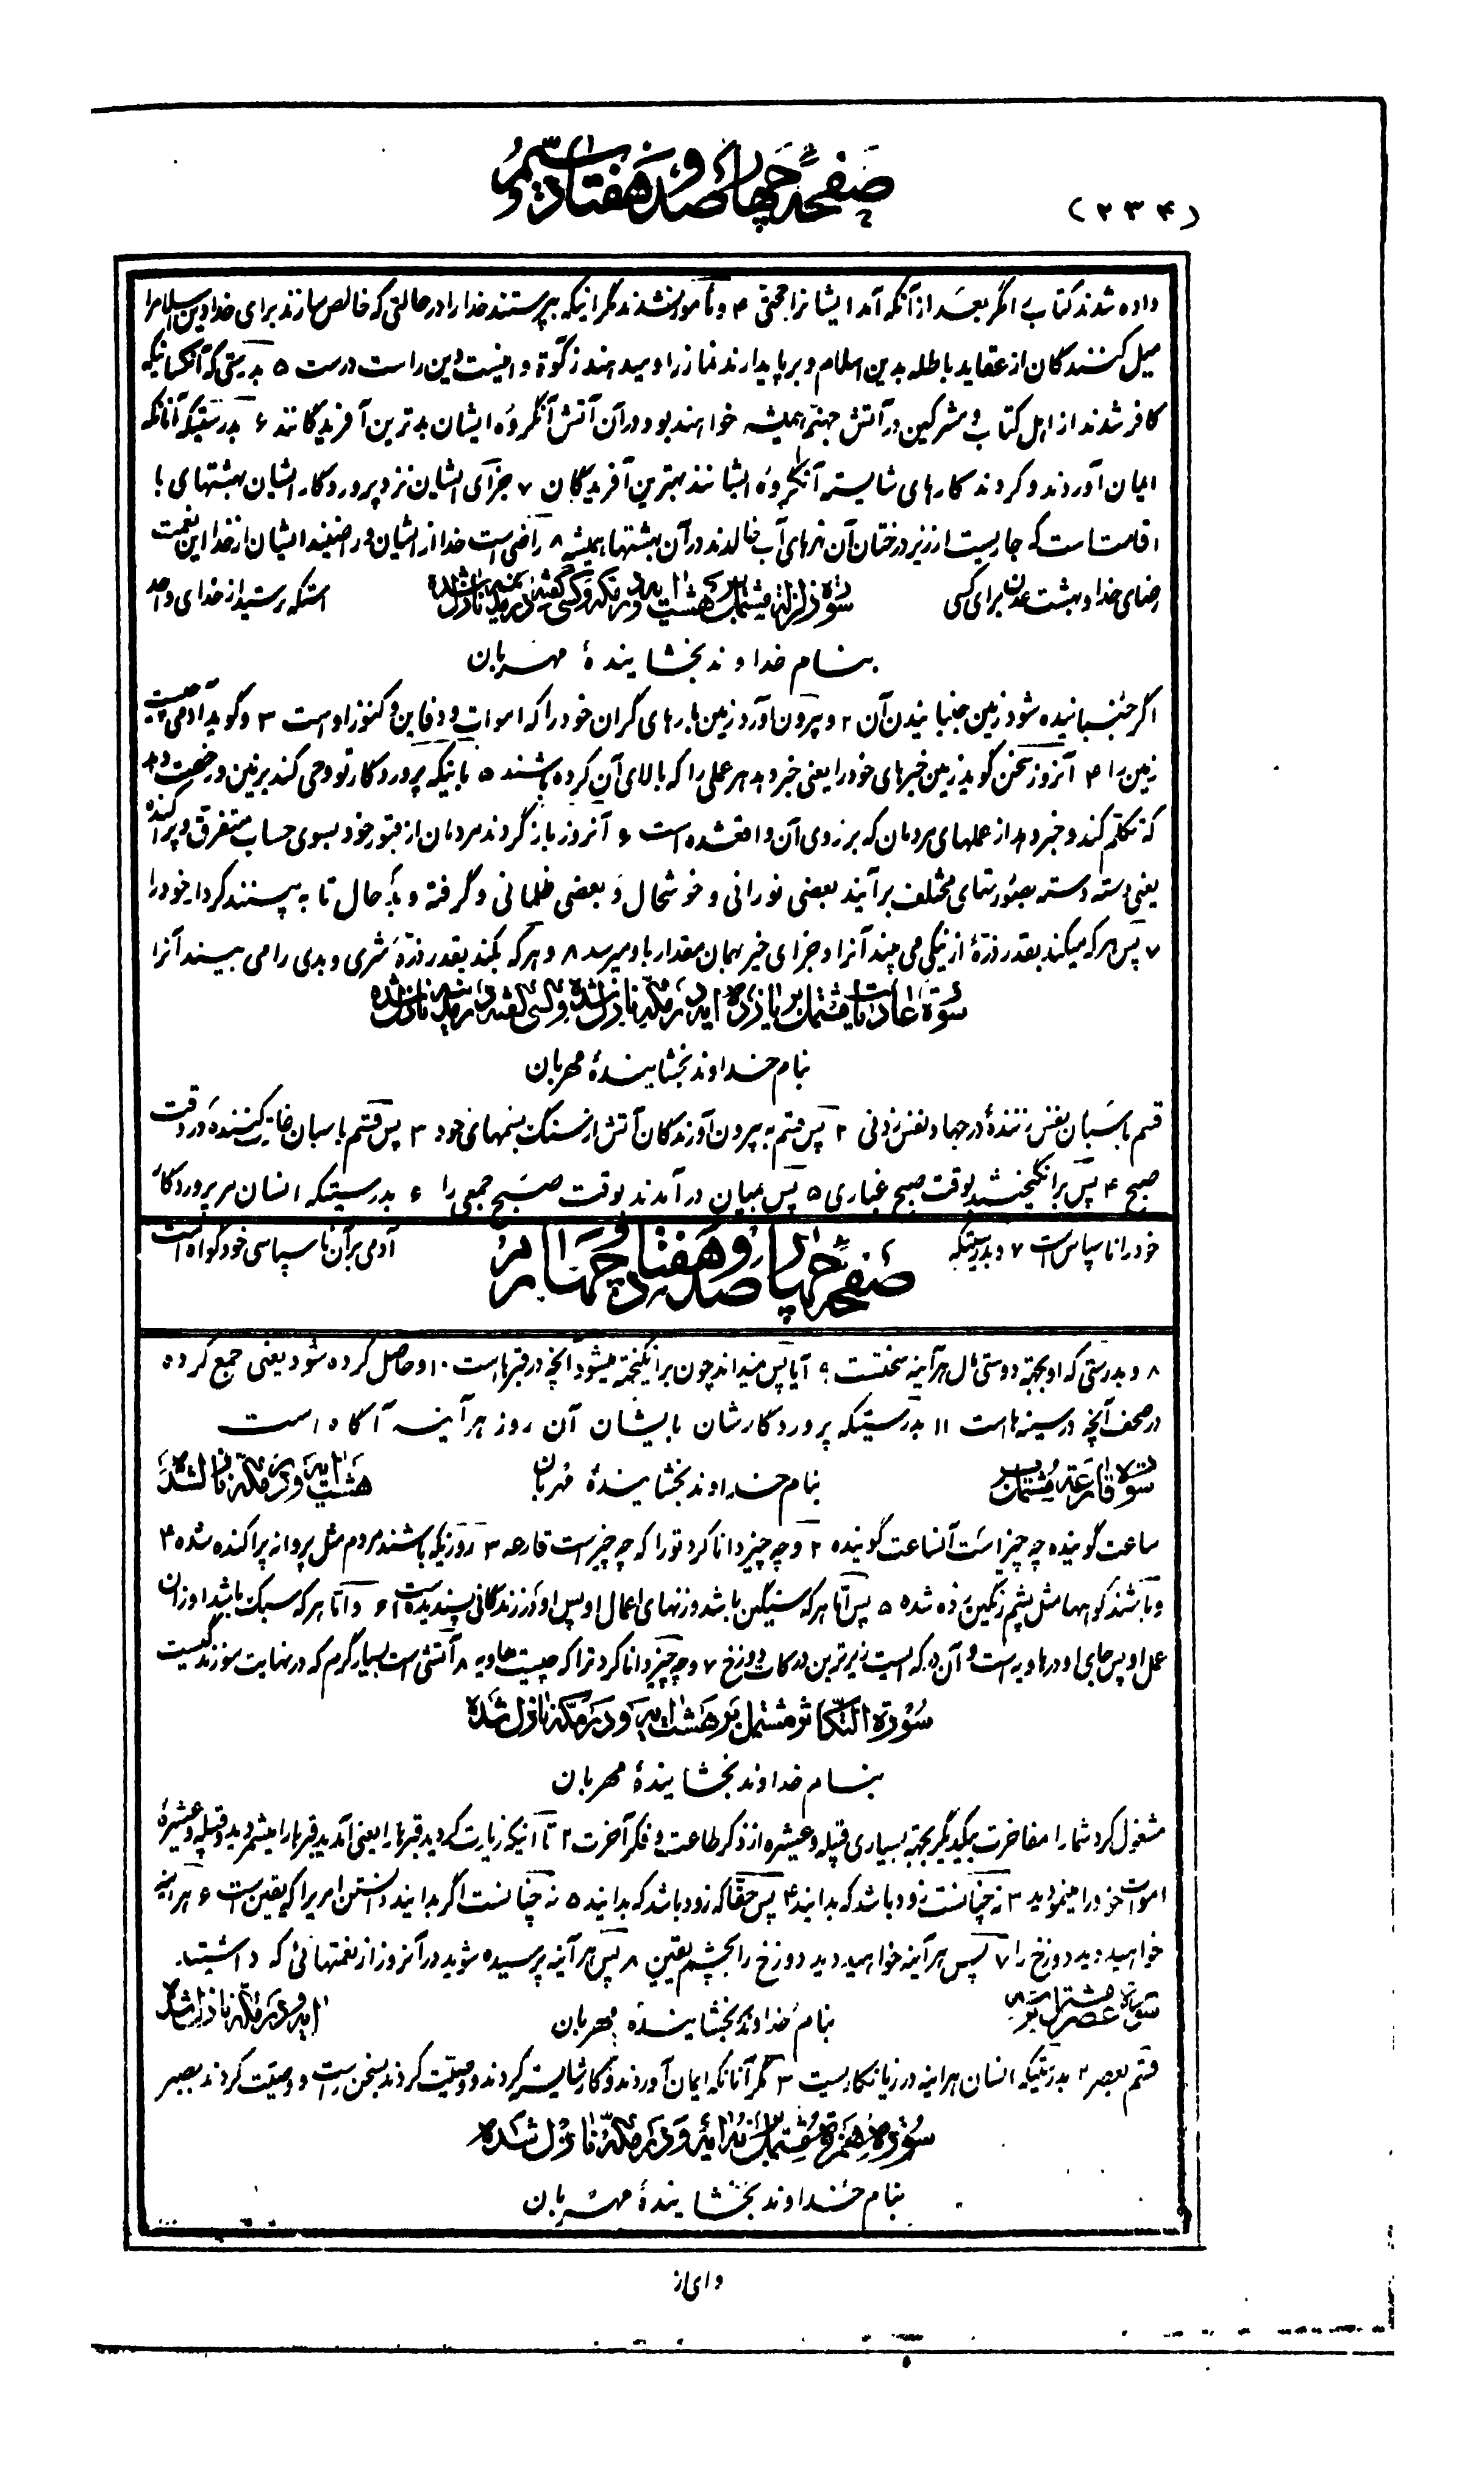 صفحه چهارصد و هفتاد و سیم
(۲۳۴)
داده شدند کتاب را مگر بعد از آنکه آمد ایشانرا حجتی ۴ و مأمور نشدند مگر اینکه بپرستند خدا را در حالتی که خالص سازند برای خدا دین اسلام را
میل کنندگان از عقاید باطله بدین اسلام و برپا بدارند نماز را و بدهند زکوة و اینست دین راست درست ۵ بدرستی که آنکسانیکه
کافر شدند از اهل کتاب و مشرکین در آتش جهنم همیشه خواهند بود در آن آتش آنگروه ایشان بدترین آفریدگانند ۶ بدرستیکه آنانکه
ایمان آوردند و کردند کارهای شایسته آنگروه ایشانند بهترین آفریدگان ۷ جزای ایشان نزد پروردگار ایشان بهشتهای با
اقامت است که جاریست از زیر درختان آن نهرهای آب خالدند در آن بهشتها همیشه ۸ راضی است خدا از ایشان و راضیند ایشان از خدا این نعمت
رضای خدا و بهشت عدن برای کسی
سوره زلزله مشتمل بر هشت ایه و در مکه و کسی گفته در مدینه نازل شده
استکه ترسید از خدای واحد
بنام خداوند بخشاینده مهربان
اگر جنبانیده شود زمین جنبانیدن آن ۲ و بیرون آورد زمین بارهای گران خود را که اموات و دفاین و کنوز اوست ۳ و گوید آدمی چیست
زمین را ۴ آنروز سخن گوید زمین خبرهای خود را یعنی خبر دهد هر عملی را که بالای آن کرده باشند ۵ باینکه پروردگار تو وحی کند بزمین و رخصت دهد
که تکلم کند و خبر دهد از عملهای مردمان که بر روی آن واقع شده است ۶ آنروز بازگردند مردمان از قبور خود بسوی حساب متفرق و پراکنده
یعنی دسته دسته بصورتهای مختلف برآیند بعضی نورانی و خوشحال و بعضی ظلمانی و گرفته و بد حال تا به بینند کردار خود را
۷ پس هر که میکند بقدر ذرهٔ از نیکی می بیند آنرا و جزای خیر بهمان مقدار باو میرسد ۸ و هر که بکند بقدر ذره شری و بدی را می بیند آنرا
سوره عادیات مشتمل بر یازده ایه در مکه نازل شده و کسی گفته در مدینه نازل شده
بنام خداوند بخشایندهٔ مهربان
قسم باسبان نفس زنندهٔ در جهاد نفس زدنی ۲ پس قسم به بیرون آورندگان آتش از سنگ بسمهای خود ۳ پس قسم باسبان غارت کننده در وقت
صبح ۴ پس برانگیختند بوقت صبح غباری ۵ پس بمیان در آمدند بوقت صبح جمعی را ۶ بدرستیکه انسان مر پروردگار
خود را ناسپاس است ۷ و بدرستیکه
صفحه چهارصد و هفتاد و چهارم
آدمی بر آن ناسپاسی خود گواه است
۸ و بدرستی که او بجهة دوستی مال هر آینه سختست ۹ آیا پس نمیداند چون برانگیخته میشود آنچه در قبرهاست ۱۰ و حاصل کرده شود یعنی جمع کرده
در صحف آنچه در سینه هاست ۱۱ بدرستیکه پروردگارشان بایشان آن روز هر آینه آگاه است
سوره قارعة مشتمل بر
بنام خداوند بخشایندهٔ مهربان
هشت ایه و در مکه نازل شده
ساعت گوبنده چه چیز است آنساعت گوبنده ۲ و چه چیز دانا کرد تو را که چه چیز است قارعه ۳ روزیکه باشند مردم مثل پروانه پراکنده شده ۴
و باشند کوهها مثل پشم رنگین زده شده ۵ پس امّا هر که سنگین باشد وزنهای اعمال او پس او در زندگانی پسندیده است ۶ و امّا هر که سبک باشد اوزان
عمل او پس جای او در هاویه است و آن درکه ایست زیرترین درکات دوزخ ۷ و چه چیز دانا کرد ترا که چیست هاویه ۸ آتشی است بسیار گرم که در نهایت سوزندگیست
سوره التکاثر مشتمل بر هشت ایه و در مکه نازل شده
بنام خداوند بخشایندهٔ مهربان
مشغول کرد شما را مفاخرت بیکدیگر بجهة بسیاری قبیله و عشیره از ذکر طاعت و فکر آخرت ۲ تا اینکه زیارت کردید قبرها را یعنی آمدید قبرها را میشمردید و قبیله و عشیرهٔ
اموات خود را مینمودید ۳ نه چنانست زود باشد که بدانید ۴ پس حقّا که زود باشد که بدانید ۵ نه چنانست اگر بدانید دانستن امریرا که یقین است ۶ هر آینه
خواهید دید دوزخ را ۷ پس هر آینه خواهید دید دوزخ را بچشم یقین ۸ پس هر آینه پرسیده شوید در آنروز از نعمتهائی که داشتید
سوره عصر مشتمل بر
بنام خداوند بخشایندهٔ مهربان
ایه و در مکه نازل شده
قسم بعصر ۲ بدرستیکه انسان هر آینه در زیانکاریست ۳ مگر آنانکه ایمان آوردند و کار شایسته کردند و وصیّت کردند بسخن راست و وصیّت کردند بصبر
سوره همزه مشتمل بر نه ایه و در مکه نازل شده
بنام خداوند بخشایندهٔ مهربان
وای از